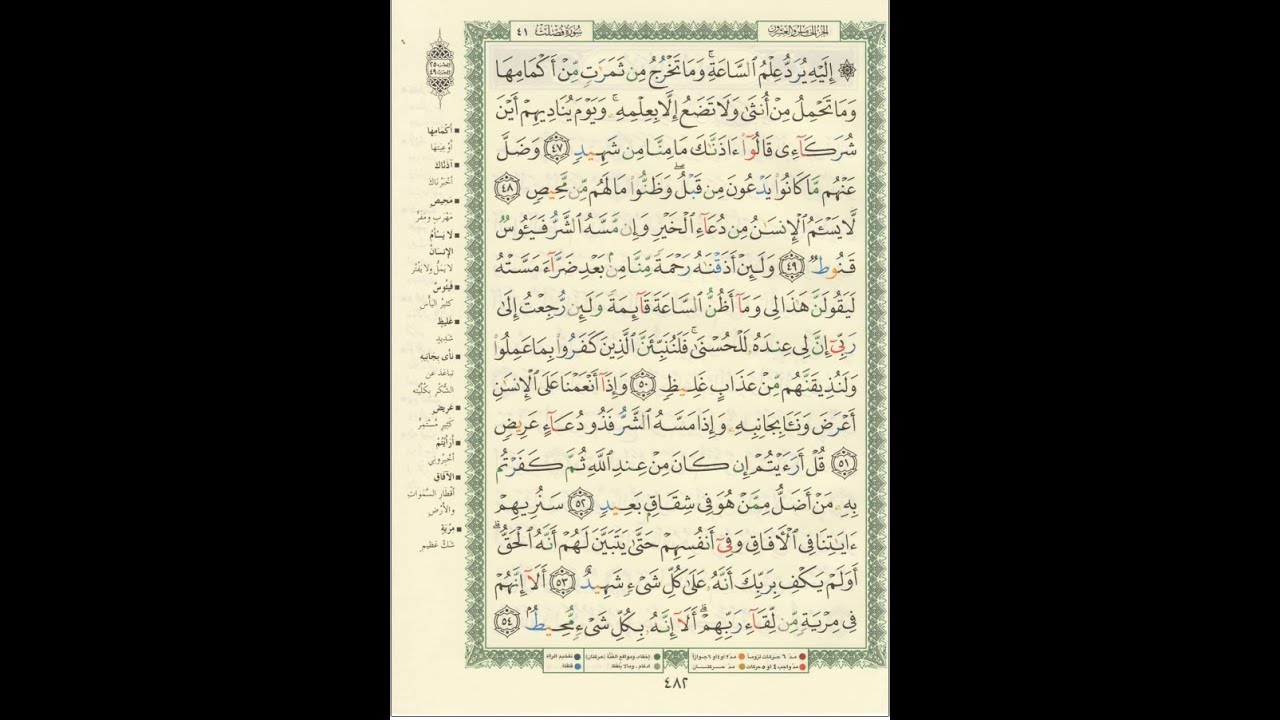 سُورَةُ فُصِّلَتْ ٤١
الجزء الخامس والعشرون
۞ إِلَيْهِ يُرَدُّ عِلْمُ ٱلسَّاعَةِۚ وَمَا تَخْرُجُ مِن ثَمَرَٰتٍ مِّنْ أَكْمَامِهَا
وَمَا تَحْمِلُ مِنْ أُنثَىٰ وَلَا تَضَعُ إِلَّا بِعِلْمِهِۦۚ وَيَوْمَ يُنَادِيهِمْ أَيْنَ
شُرَكَآءِى قَالُوٓا۟ ءَاذَنَّٰكَ مَا مِنَّا مِن شَهِيدٍ ٤٧ وَضَلَّ
عَنْهُم مَّا كَانُوا۟ يَدْعُونَ مِن قَبْلُۖ وَظَنُّوا۟ مَا لَهُم مِّن مَّحِيصٍ ٤٨
لَّا يَسْـَٔمُ ٱلْإِنسَٰنُ مِن دُعَآءِ ٱلْخَيْرِ وَإِن مَّسَّهُ ٱلشَّرُّ فَيَـُٔوسٌ
قَنُوطٌ ٤٩ وَلَئِنْ أَذَقْنَٰهُ رَحْمَةً مِّنَّا مِنۢ بَعْدِ ضَرَّآءَ مَسَّتْهُ
لَيَقُولَنَّ هَٰذَا لِى وَمَآ أَظُنُّ ٱلسَّاعَةَ قَآئِمَةً وَلَئِن رُّجِعْتُ إِلَىٰ
رَبِّىٓ إِنَّ لِى عِندَهُۥ لَلْحُسْنَىٰۚ فَلَنُنَبِّئَنَّ ٱلَّذِينَ كَفَرُوا۟ بِمَا عَمِلُوا۟
وَلَنُذِيقَنَّهُم مِّنْ عَذَابٍ غَلِيظٍ ٥٠ وَإِذَآ أَنْعَمْنَا عَلَى ٱلْإِنسَٰنِ
أَعْرَضَ وَنَـَٔا بِجَانِبِهِۦ وَإِذَا مَسَّهُ ٱلشَّرُّ فَذُو دُعَآءٍ عَرِيضٍ
٥١ قُلْ أَرَءَيْتُمْ إِن كَانَ مِنْ عِندِ ٱللَّهِ ثُمَّ كَفَرْتُم
بِهِۦ مَنْ أَضَلُّ مِمَّنْ هُوَ فِى شِقَاقٍۭ بَعِيدٍ ٥٢ سَنُرِيهِمْ
ءَايَٰتِنَا فِى ٱلْـَٔافَاقِ وَفِىٓ أَنفُسِهِمْ حَتَّىٰ يَتَبَيَّنَ لَهُمْ أَنَّهُ ٱلْحَقُّۗ
أَوَلَمْ يَكْفِ بِرَبِّكَ أَنَّهُۥ عَلَىٰ كُلِّ شَىْءٍ شَهِيدٌ ٥٣ أَلَآ إِنَّهُمْ
فِى مِرْيَةٍ مِّن لِّقَآءِ رَبِّهِمْۗ أَلَآ إِنَّهُۥ بِكُلِّ شَىْءٍ مُّحِيطٌۢ ٥٤
■ أكْمَامِها
أوْعِيَتِها
■ آذَنَّاكَ
أخْبَرْنَاكَ
■ مَحِيصٍ
مَهْرَبٍ ومَفَرٍّ
■ لا يَسْأَمُ
الإنسَانُ
لا يَمَلُّ ولا يَفْتُر
■ فَيَئُوسٌ
كثيرُ اليَأْسِ
■ غَلِيظٍ
شَدِيدٍ
■ نَأى بِجَانِبِهِ
تباعَدَ عن
الشُّكْرِ بِكُلِّيَّتِه
■ عَرِيضٍ
كَثِيرٍ مُسْتَمِرٍّ
■ أَرَأَيْتُمْ
أخْبِرُوني
■ الآفَاقِ
أقْطارِ السَّمَوَاتِ
والأَرْضِ
■ مِرْيَةٍ
شَكٍّ عَظِيمٍ
مدّ ٦ حركات لزوماً
مدّ ٢ أو ٤ أو ٦ جوازاً
مدّ واجب ٤ أو ٥ حركات
مدّ حركتان
إخفاء، ومواقع الغُنَّة (حركتان)
ادغام، وما لا يُلفَظ
تفخيم الراء
قلقلة
٤٨٢